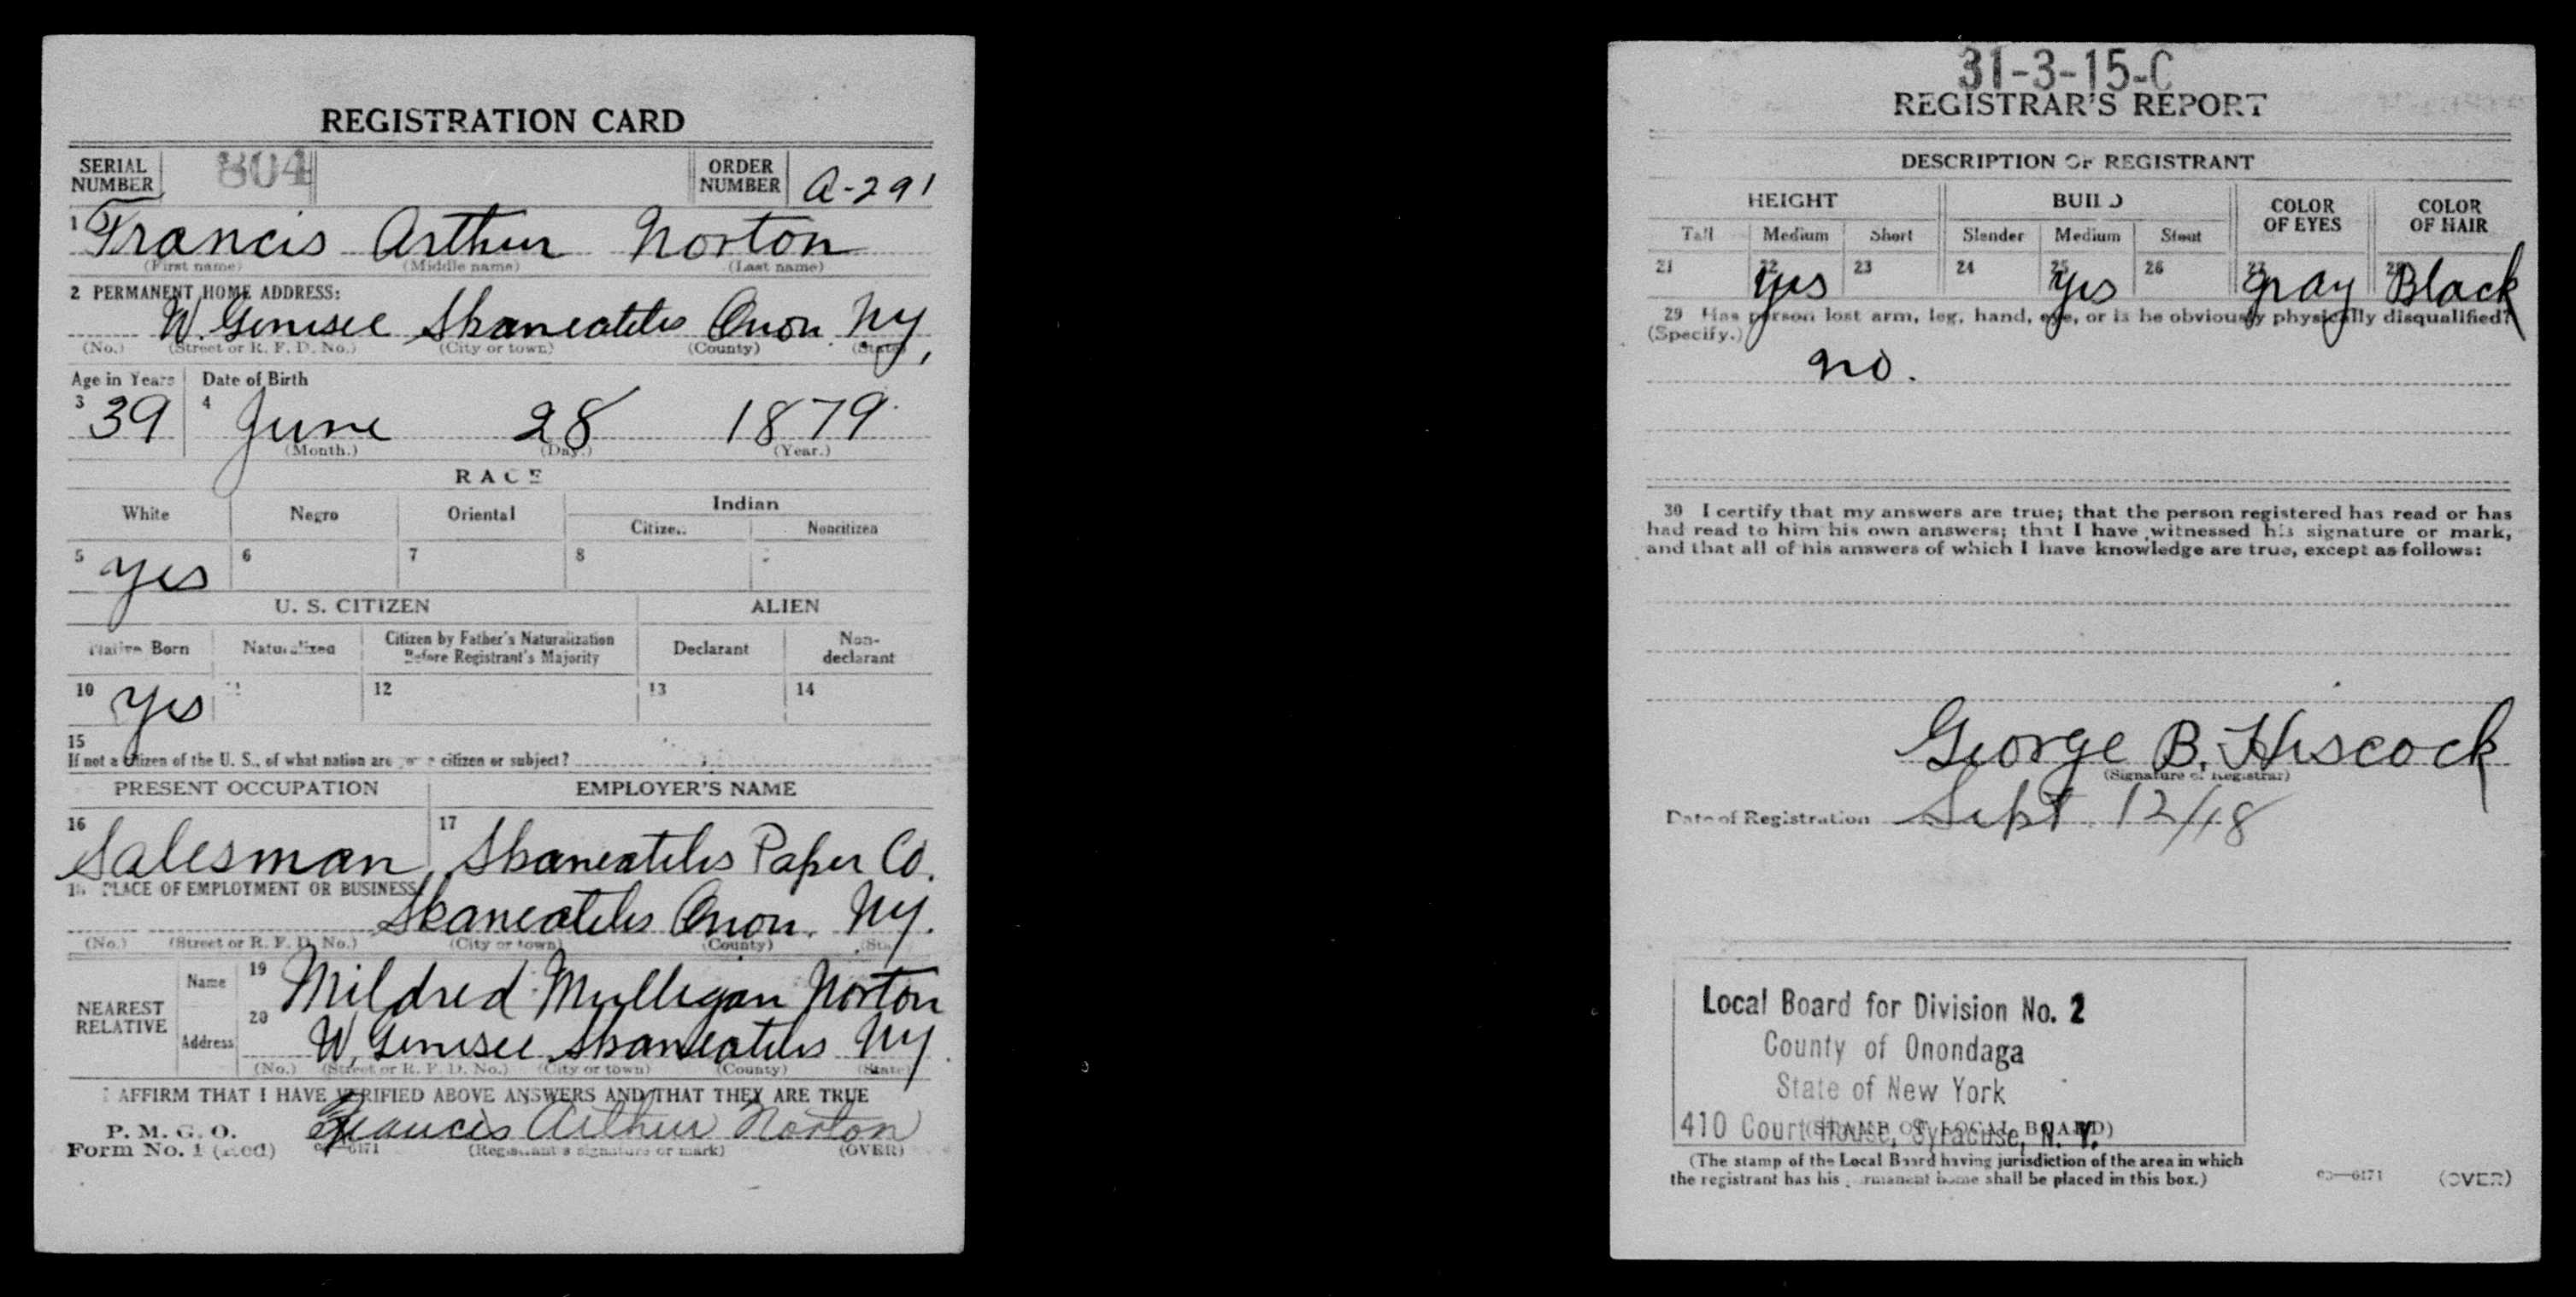 REGISTRATION CARD
SERIAL NUMBER 804 ORDER NUMBER A-291
1 Francis Arthur Norton
(First name) (Middle name) (Last name)
2 PERMANENT HOME ADDRESS:
W. Genisee Skaneateles Onon. NY,
(No.) (Street or R. F. D. No.) (City or town) (County) (State)
Age in Years Date of Birth
3 39 4 June 28 1879
(Month.) (Day.) (Year.)
RACE
White Negro Oriental Indian
Citizen Noncitizen
5 yes 6 7 8
U. S. CITIZEN ALIEN
Native Born Naturalized Citizen by Father's Naturalization Before Registrant's Majority Declarant Non-declarant
10 yes 11 12 13 14
15
If not a citizen of the U. S., of what nation are you a citizen or subject?
PRESENT OCCUPATION EMPLOYER'S NAME
16 Salesman 17 Skaneateles Paper Co.
18 PLACE OF EMPLOYMENT OR BUSINESS
Skaneateles Onon. NY.
(No.) (Street or R. F. D. No.) (City or town) (County) (State)
NEAREST RELATIVE Name 19 Mildred Mulligan Norton
Address 20 W. Genisee Skaneateles NY
(No.) (Street or R. F. D. No.) (City or town) (County) (State)
I AFFIRM THAT I HAVE VERIFIED ABOVE ANSWERS AND THAT THEY ARE TRUE
P. M. G. O.
Form No. 1 (Red) Francis Arthur Norton
03—6171 (Registrant's signature or mark) (OVER)
31-3-15-C
REGISTRAR'S REPORT
DESCRIPTION OF REGISTRANT
HEIGHT BUILD COLOR OF EYES COLOR OF HAIR
Tall Medium Short Slender Medium Stout
21 22 yes 23 24 25 yes 26 27 gray 28 Black
29 Has person lost arm, leg, hand, eye, or is he obviously physically disqualified?
(Specify.)
no.
30 I certify that my answers are true; that the person registered has read or has
had read to him his own answers; that I have witnessed his signature or mark,
and that all of his answers of which I have knowledge are true, except as follows:
George B. Hiscock
(Signature of Registrar)
Date of Registration Sept. 12/18
Local Board for Division No. 2
County of Onondaga
State of New York
410 Court House, Syracuse, N. Y.
(STAMP OF LOCAL BOARD)
(The stamp of the Local Board having jurisdiction of the area in which
the registrant has his permanent home shall be placed in this box.)
03—6171 (OVER)